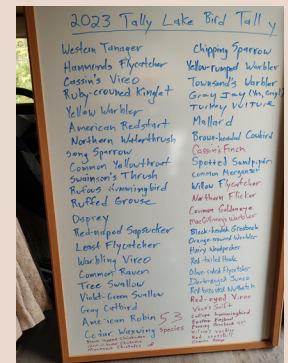 2023 Tally Lake Bird Tally
Western Tanager
Hammonds Flycatcher
Cassin's Vireo
Ruby-crowned Kinglet
Yellow Warbler
American Redstart
Northern Waterthrush
Song Sparrow
Common Yellowthroat
Swainson's Thrush
Rufous Hummingbird
Ruffed Grouse
Osprey
Red-naped Sapsucker
Least Flycatcher
Warbling Vireo
Common Raven
Tree Swallow
Violet-Green Swallow
Gray Catbird
American Robin
Cedar Waxwing
53
Species
Chipping Sparrow
Yellow-rumped Warbler
Townsand's Warbler
Gray Jay
Turkey Vulture
Mallard
Brown-headed Cowbird
Cassin's Finch
Spotted Sandpiper
Common Merganser
Willow Flycatcher
Northern Flicker
Common Goldeneye
MacGillivray's Warbler
Black-headed Grosbeak
Orange-crowned Warbler
Hairy Woodpecker
Red-tailed Hawk
Olive-sided Flycatcher
Dark-eyed Junco
Red-breasted Nuthatch
Red-eyed Vireo
Vaux's Swift
Calliope hummingbird